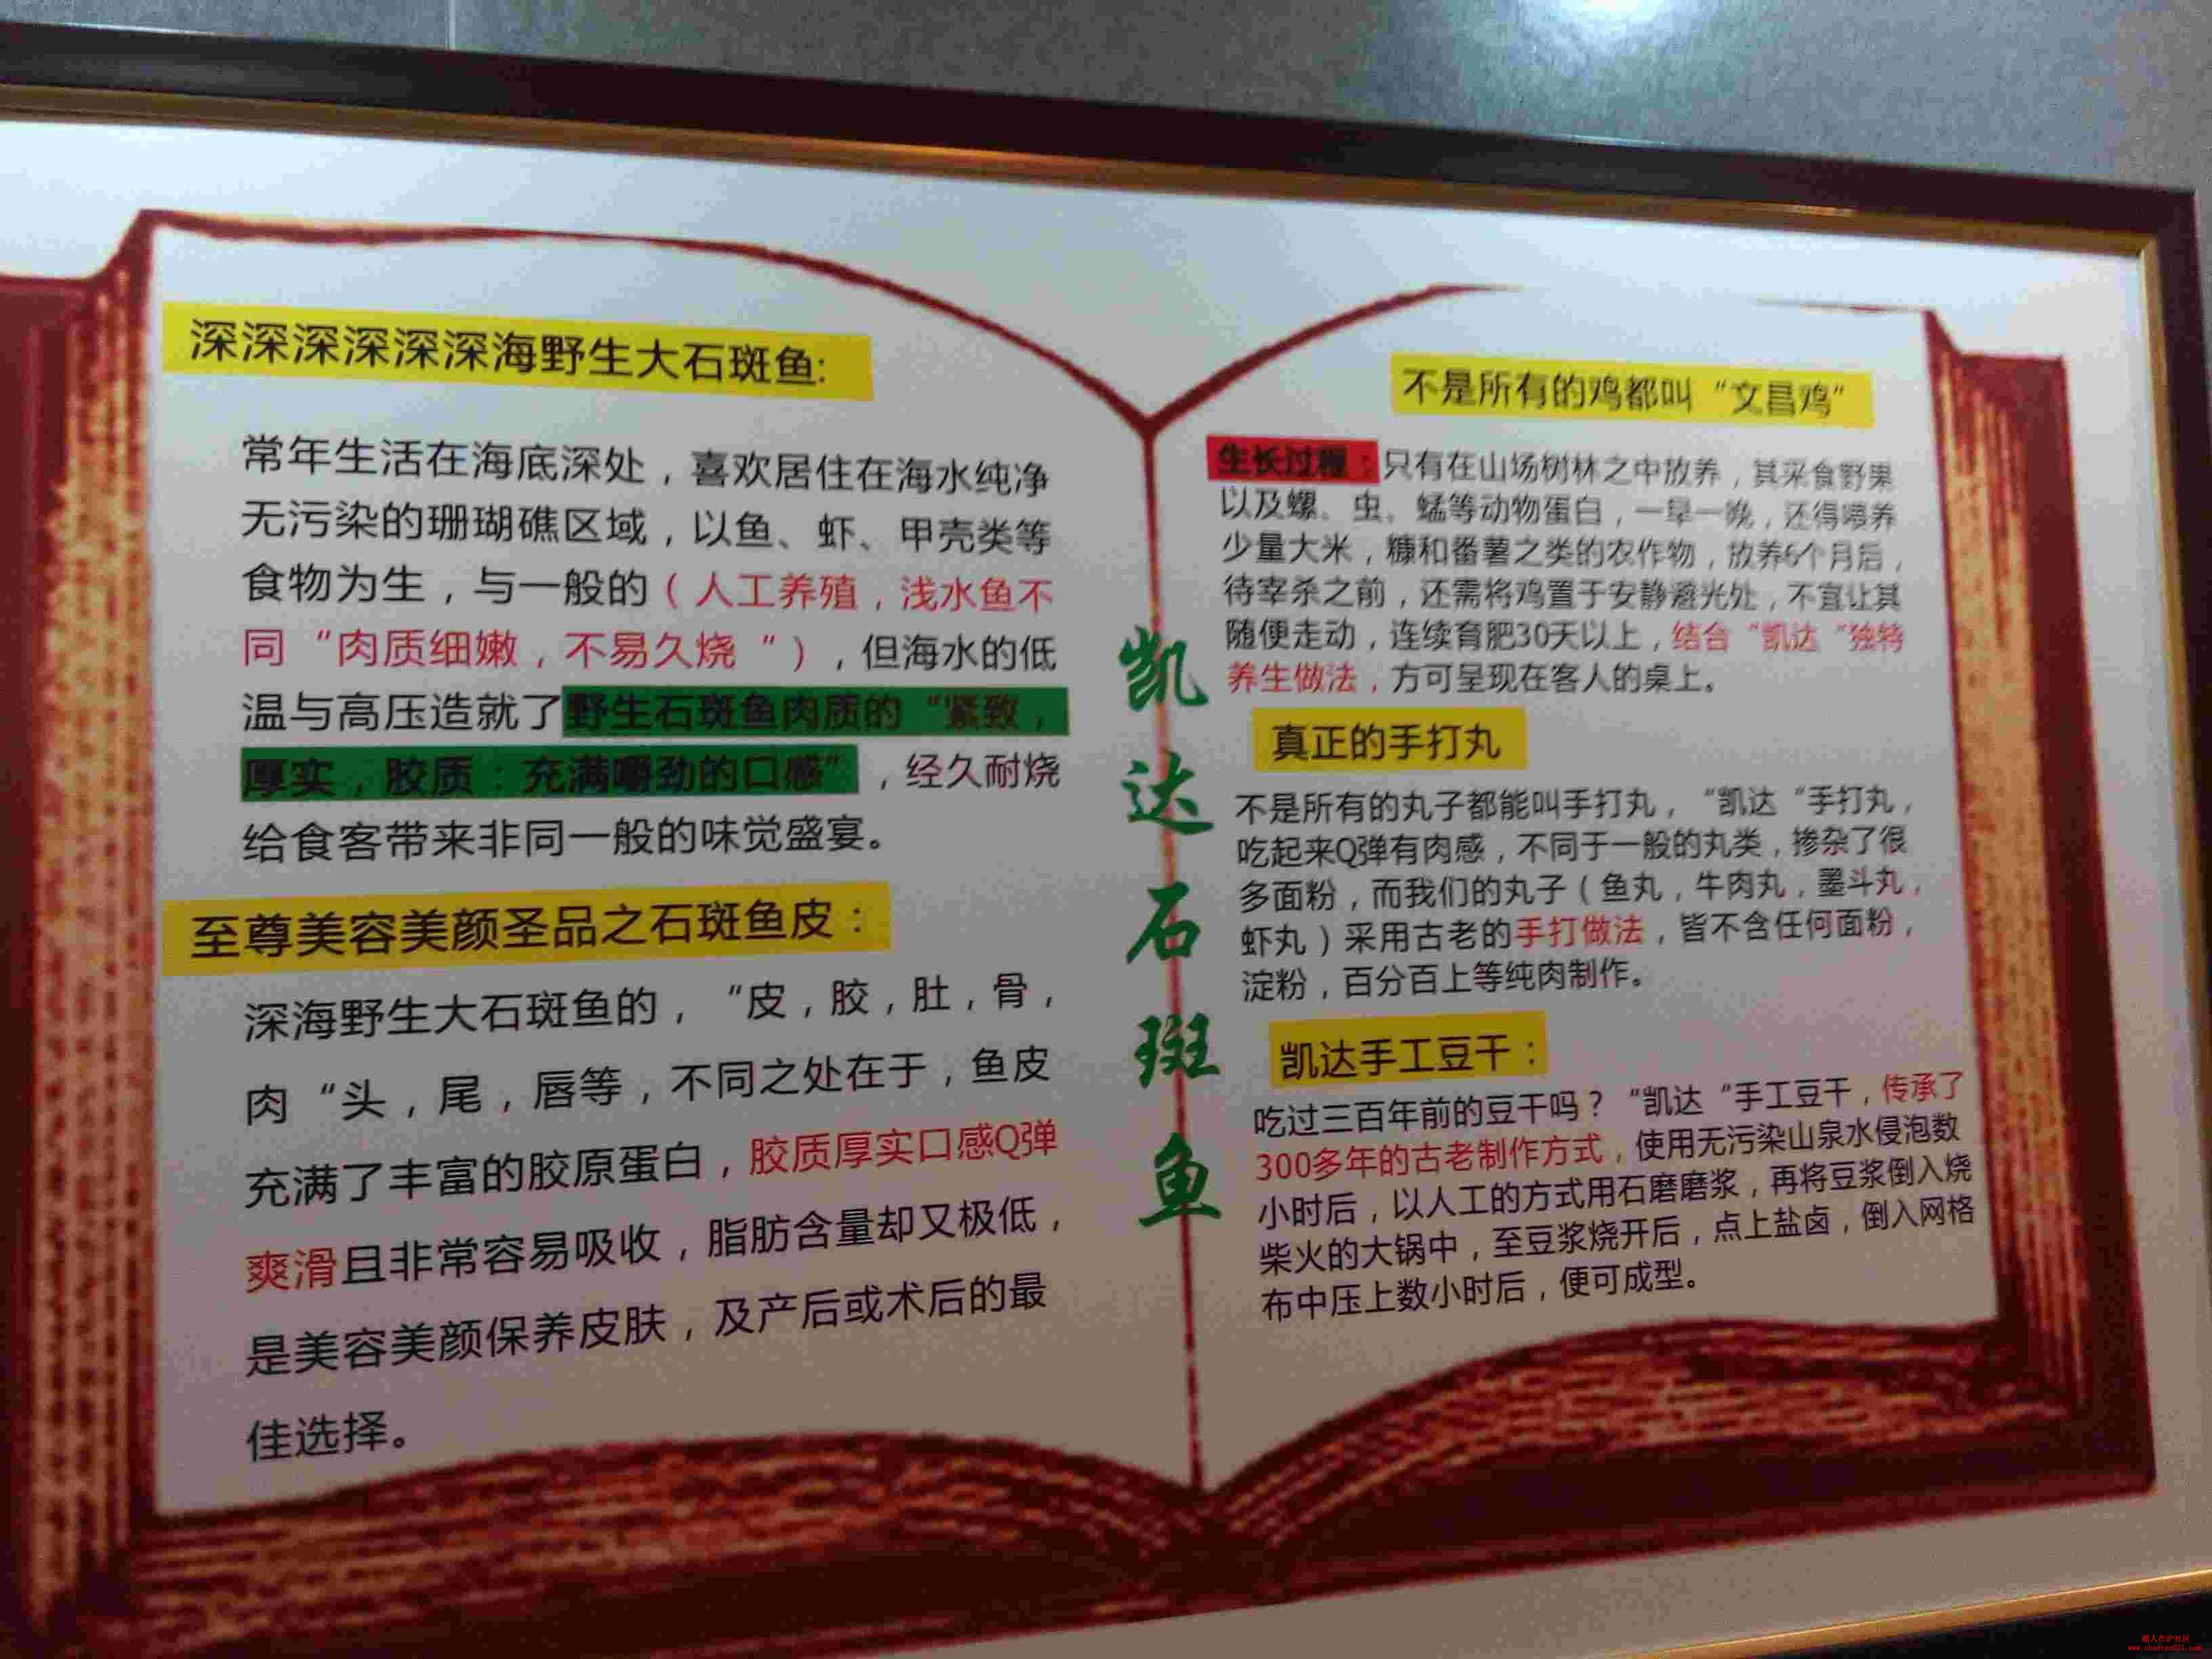 深深深深深深海野生大石斑鱼:
常年生活在海底深处，喜欢居住在海水纯净
无污染的珊瑚礁区域，以鱼、虾、甲壳类等
食物为生，与一般的（人工养殖，浅水鱼不
同“肉质细嫩，不易久烧 ”），但海水的低
温与高压造就了野生石斑鱼肉质的“紧致，
厚实，胶质：充满嚼劲的口感”，经久耐烧
给食客带来非同一般的味觉盛宴。
至尊美容美颜圣品之石斑鱼皮：
深海野生大石斑鱼的，“皮，胶，肚，骨，
肉“头，尾，唇等，不同之处在于，鱼皮
充满了丰富的胶原蛋白，胶质厚实口感Q弹
爽滑且非常容易吸收，脂肪含量却又极低，
是美容美颜保养皮肤，及产后或术后的最
佳选择。
凯达石斑鱼
不是所有的鸡都叫“文昌鸡”
生长过程：只有在山场树林之中放养，其采食野果
以及螺、虫、蜢等动物蛋白，一早一晚，还得喂养
少量大米，糠和番薯之类的农作物，放养6个月后，
待宰杀之前，还需将鸡置于安静避光处，不宜让其
随便走动，连续育肥30天以上，结合“凯达“独特
养生做法，方可呈现在客人的桌上。
真正的手打丸
不是所有的丸子都能叫手打丸，“凯达“手打丸，
吃起来Q弹有肉感，不同于一般的丸类，掺杂了很
多面粉，而我们的丸子（鱼丸，牛肉丸，墨斗丸，
虾丸）采用古老的手打做法，皆不含任何面粉，
淀粉，百分百上等纯肉制作。
凯达手工豆干：
吃过三百年前的豆干吗？“凯达“手工豆干，传承了
300多年的古老制作方式，使用无污染山泉水侵泡数
小时后，以人工的方式用石磨磨浆，再将豆浆倒入烧
柴火的大锅中，至豆浆烧开后，点上盐卤，倒入网格
布中压上数小时后，便可成型。
潮人在沪社区
www.chaoren021.com